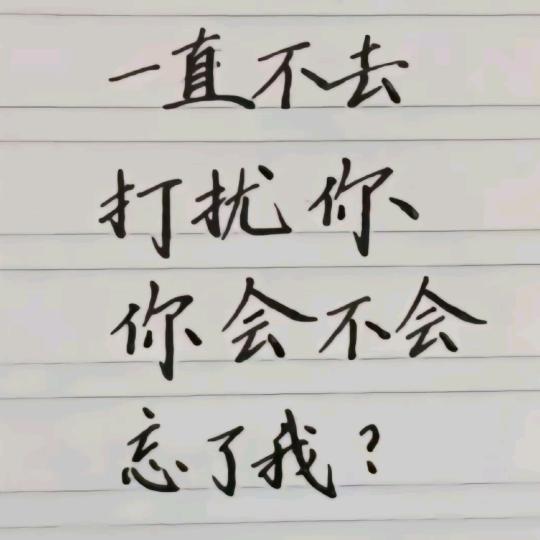 一直不去
打扰你
你会不会
忘了我？